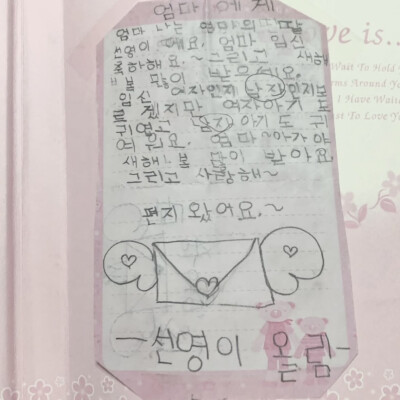 엄마에게
엄마 나는 엄마의 딸
선영이에요. 엄마 임신
축하해요.~ 그리고 새해
복 많이 받으세요.
임신 여자인지 남자인지모
르겠지만 여자아기도
귀엽고 남자아기도 귀
여워요. 엄마~아가야
새해 볼 많이 받아요
그리고 사랑해~
편지 왔어요.~
-선영이 올림-
e is..
Wait To Hold
rms Around You
I Have Waite
st To Love You